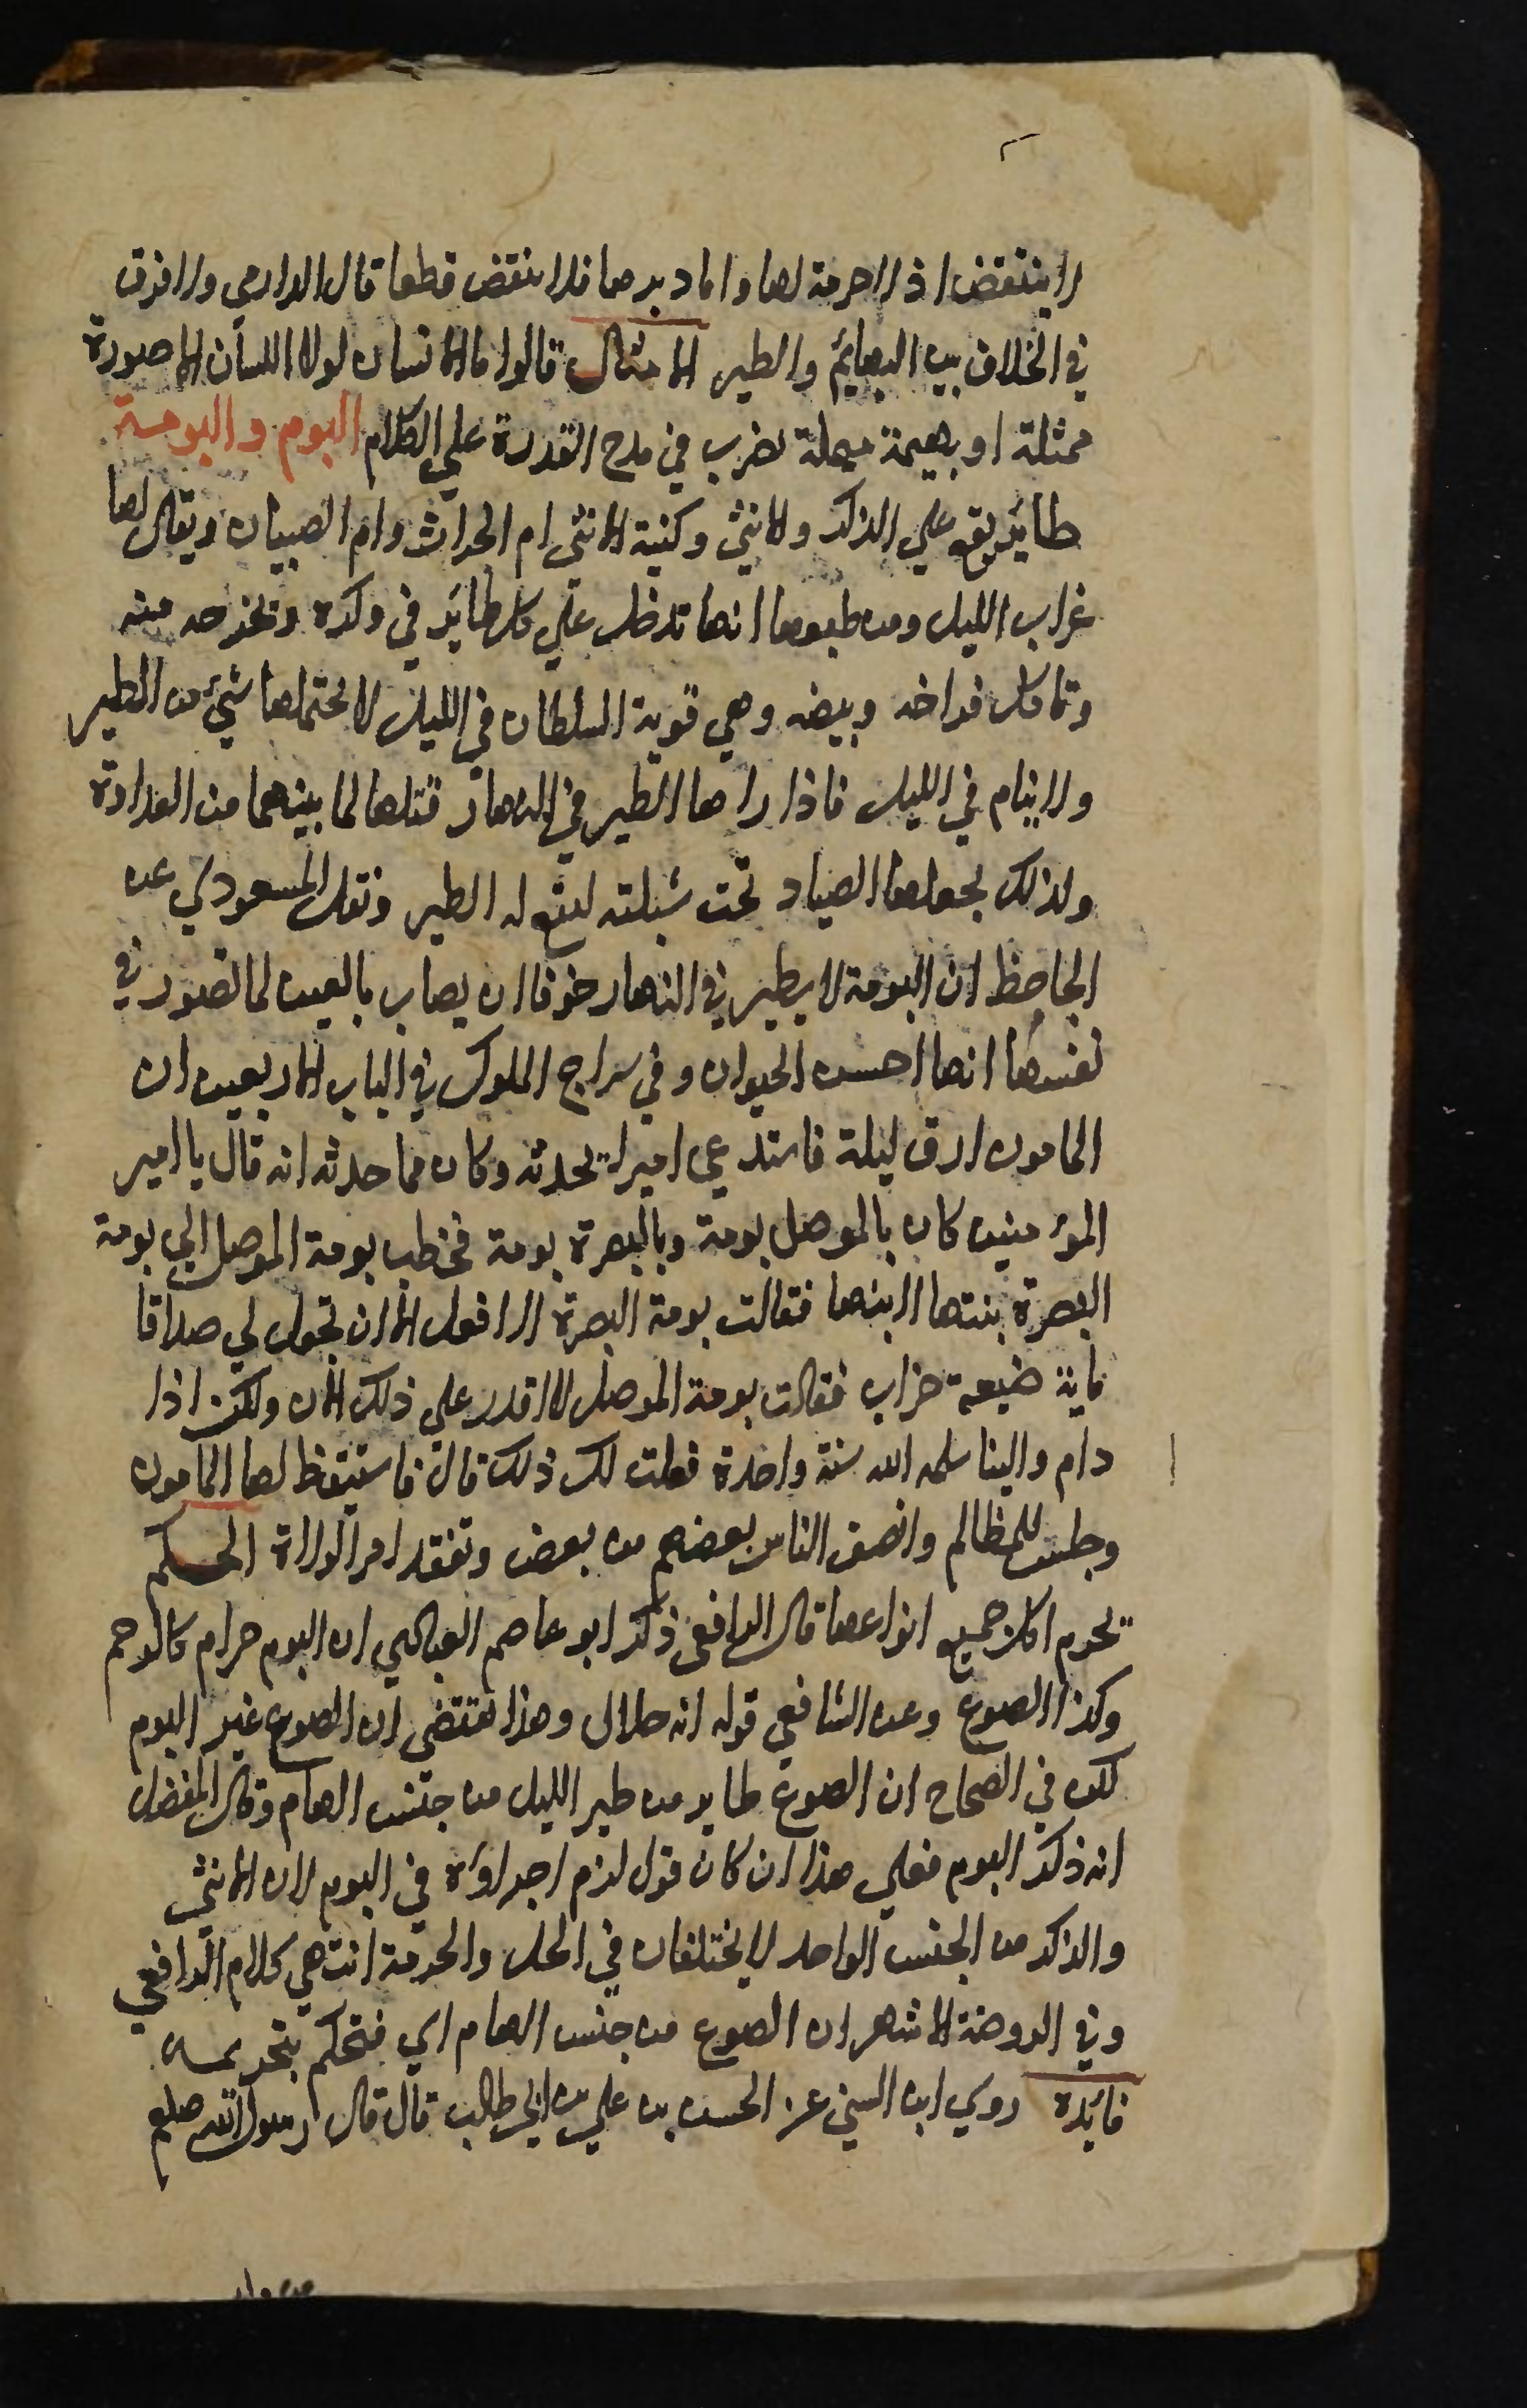 لا ينتقض اذ لا حرمة لها واما دبرها فلا ينقض قطعا قال الدارمي ولا فرق
في الخلاف بين البهائم والطير الامثال قالوا ما الانسان لولا اللسان الا صورة
ممثلة او بهيمة مهملة يضرب في مدح القدرة علي الكلام البوم والبومة
طائر يقع علي الذكر والانثي وكنية الانثي ام الخراب وام الصبيان ويقال لها
غراب الليل ومن طبعها انها تدخل علي كل طائر في وكره وتخرجه منه
وتاكل فراخه وبيضه وهي قوية السلطان في الليل لا يحتملها شئ من الطير
ولا ينام في الليل فاذا راها الطير في النهار قتلها لما بينهما من العداوة
ولذلك يجعلها الصياد تحت شبكته ليقع له الطير ونقل المسعودي عن
الجاحظ ان البومة لا يطير في النهار خوفا ان يصاب بالعين لما تصور في
نفسها انها احسن الحيوان وفي سراج الملوك في الباب الاربعين ان
المامون ارق ليلة فاستدعي اميرا يحدثه وكان مما حدثه انه قال يا امير
المؤمنين كان بالموصل بومة وبالبصرة بومة فخطب بومة الموصل الي بومة
البصرة بنتها لابنها فقالت بومة البصرة لا افعل الا ان تجعل لي صداقا
ماية ضيعة خراب فقالت بومة الموصل لا اقدر علي ذلك الان ولكن اذا
دام والينا سلمه الله سنة واحدة فعلت لك ذلك قال فاستيقظ لها المامون
وجلس للمظالم وانصف الناس بعضهم من بعض وتفقد امر الولاة الحكم
يحرم اكل جميع انواعها قال الرافعي ذكر ابو عاصم العبادي ان البوم حرام كالرخم
وكذا الضوع وعن الشافعي قوله انه حلال وهذا يقتضي ان الضوع غير البوم
لكن في الصحاح ان الضوع طاير من طير الليل من جنس الهام وقال المفضل
انه ذكر البوم فعلي هذا ان كان قول لزم اجراؤه في البوم لان الانثي
والذكر من الجنس الواحد لا يختلفان في الحل والحرمة انتهي كلام الرافعي
وفي الروضة الاشهر ان الضوع من جنس الهام اي فنحكم بتحريمه
فائدة روي ابن السني عن الحسن بن علي بن ابي طالب قال قال رسول الله صلعم